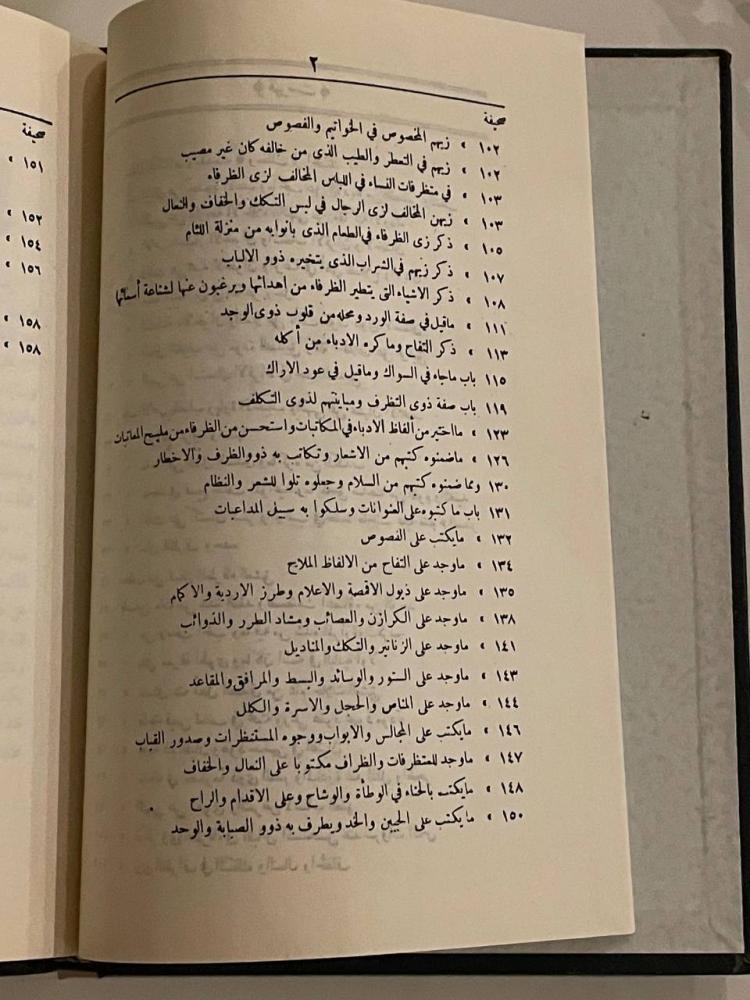 ٢
صحيفة
١٠٢ » زيهم المخصوص في الخواتيم والفصوص
١٠٢ » زيهم في التعطر والطيب الذى من خالفه كان غير مصيب
١٠٣ » في متظرفات النساء في اللباس المخالف لزى الظرفاء
١٠٣ » زيهن المخالف لزى الرجال في لبس التكك والخفاف والنعال
١٠٥ » ذكر زى الظرفاء في الطعام الذى بانوابه من منزلة اللئام
١٠٧ » ذكر زيهم في الشراب الذى يتخيره ذوو الالباب
١٠٨ » ذكر الاشياء التى يتطير الظرفاء من اهدائها ويرغبون عنها لشناعة أسمائها
١١١ » ماقيل في صفة الورد ومحله من قلوب ذوى الوجد
١١٣ » ذكر التفاح وماكره الادباء من أكله
١١٥ باب ماجاء في السواك وماقيل في عود الاراك
١١٩ باب صفة ذوى التظرف ومباينتهم لذوى التكلف
١٢٣ » مااختير من ألفاظ الادباء في المكاتبات واستحسن من الظرفاء من مليح المعاتبات
١٢٦ » ماضمنوه كتبهم من الاشعار وتكاتب به ذوو الظرف والاخطار
١٣٠ ومما ضمنوه كتبهم من السلام وجعلوه تلوا للشعر والنظام
١٣١ باب ما كتبوه على العنوانات وسلكوا به سبيل المداعبات
١٣٢ » مايكتب على الفصوص
١٣٤ » ماوجد على التفاح من الالفاظ الملاح
١٣٥ » ماوجد على ذيول الاقمصة والاعلام وطرز الاردية والاكمام
١٣٨ » ماوجد على الكرازن والعصائب ومشاد الطرر والذوائب
١٤١ » ماوجد على الزنانير والتكك والمناديل
١٤٣ » ماوجد على الستور والوسائد والبسط والمرافق والمقاعد
١٤٤ » ماوجد على المناص والحجل والاسرة والكلل
١٤٦ » مايكتب على المجالس والابواب ووجوه المستنظرات وصدور القباب
١٤٧ » ماوجد للمتظرفات والظراف مكتوبا على النعال والخفاف
١٤٨ » مايكتب بالحناء في الوطأة والوشاح وعلى الاقدام والراح
١٥٠ » مايكتب على الجبين والخد ويطرف به ذوو الصبابة والوجد
صحيفة
١٥١ »
١٥٢ »
١٥٤ »
١٥٦ »
١٥٨ »
١٥٨ »